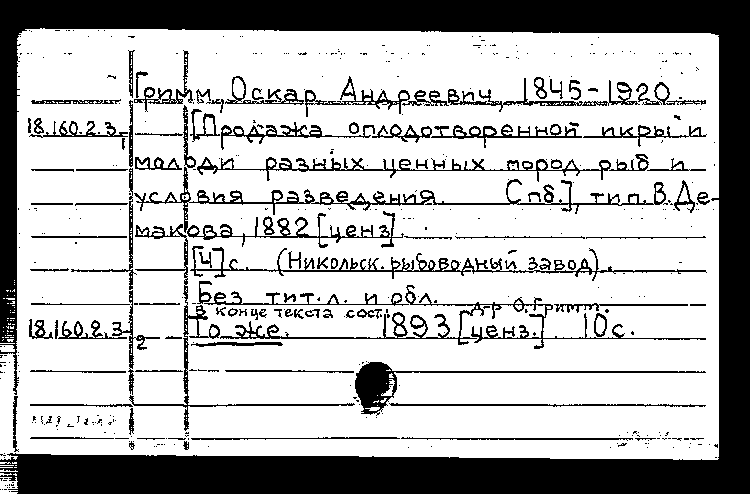 Гримм, Оскар Андреевич, 1845-1920.
18.160.2.3/1 [Продажа оплодотворенной икры и
молоди разных ценных пород рыб и
условия разведения. Спб.], тип. В. Де-
макова, 1882 [ценз].
[4] с. (Никольск. рыбоводный завод).
Без тит. л. и обл.
В конце текста сост.: д-р О. Гримм.
18.160.2.3/2 То же. 1893 [ценз.] 10 с.